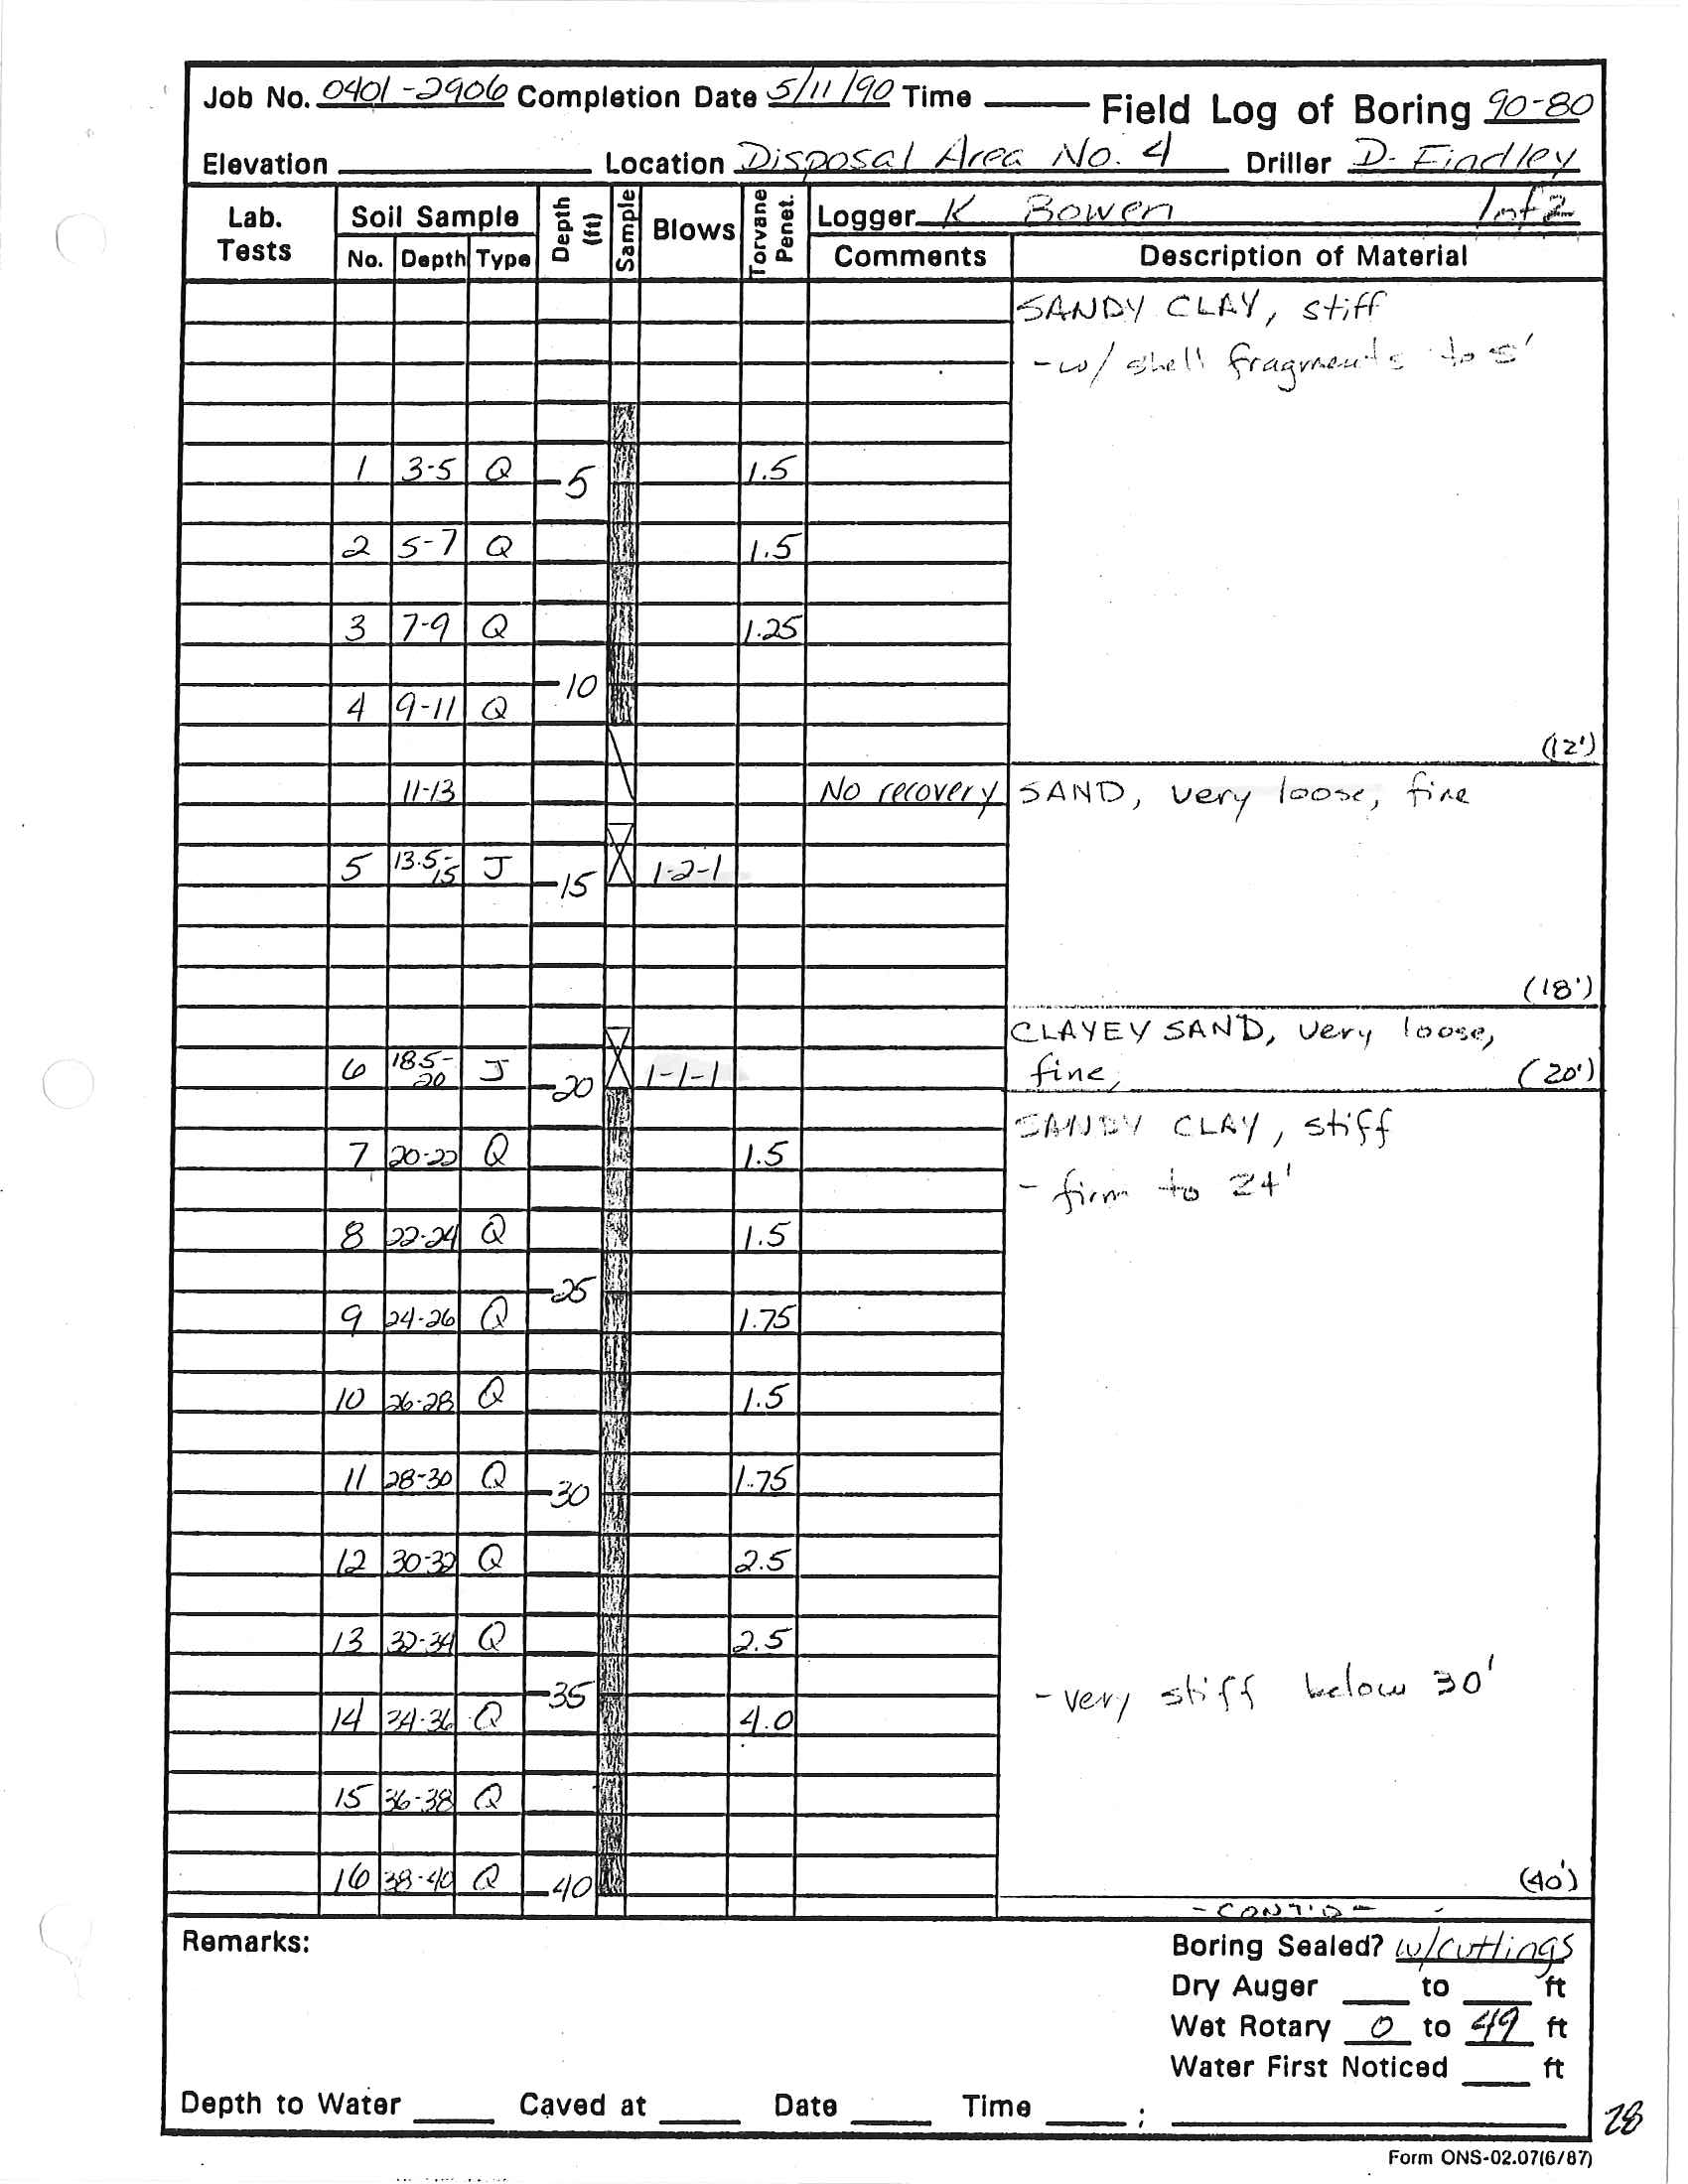 Job No. 0401-2906 Completion Date 5/11/90 Time ____ Field Log of Boring 90-80
Elevation ____ Location Disposal Area No. 4 Driller D. Findley
Lab. Tests Soil Sample Depth (ft) Sample Blows Torvane Penet. Logger K Bowen 1 of 2
No. Depth Type Comments Description of Material
SANDY CLAY, stiff
- w/ shell fragments to 5'
1 3-5 Q -5 1.5
2 5-7 Q 1.5
3 7-9 Q 1.25
-10
4 9-11 Q
(12')
11-13 No recovery SAND, very loose, fine
5 13.5-15 J -15 1-2-1
(18')
CLAYEY SAND, very loose,
6 18.5-20 J -20 1-1-1 fine, (20')
SANDY CLAY, stiff
7 20-22 Q 1.5
- firm to 24'
8 22-24 Q 1.5
-25
9 24-26 Q 1.75
10 26-28 Q 1.5
11 28-30 Q -30 1.75
12 30-32 Q 2.5
13 32-34 Q 2.5
-35 - very stiff below 30'
14 34-36 Q 4.0
15 36-38 Q
16 38-40 Q -40 (40')
- CONT'D -
Remarks: Boring Sealed? w/cuttings
Dry Auger ____ to ____ ft
Wet Rotary 0 to 49 ft
Water First Noticed ____ ft
Depth to Water ____ Caved at ____ Date ____ Time ____ ; ____
28
Form ONS-02.07(6/87)